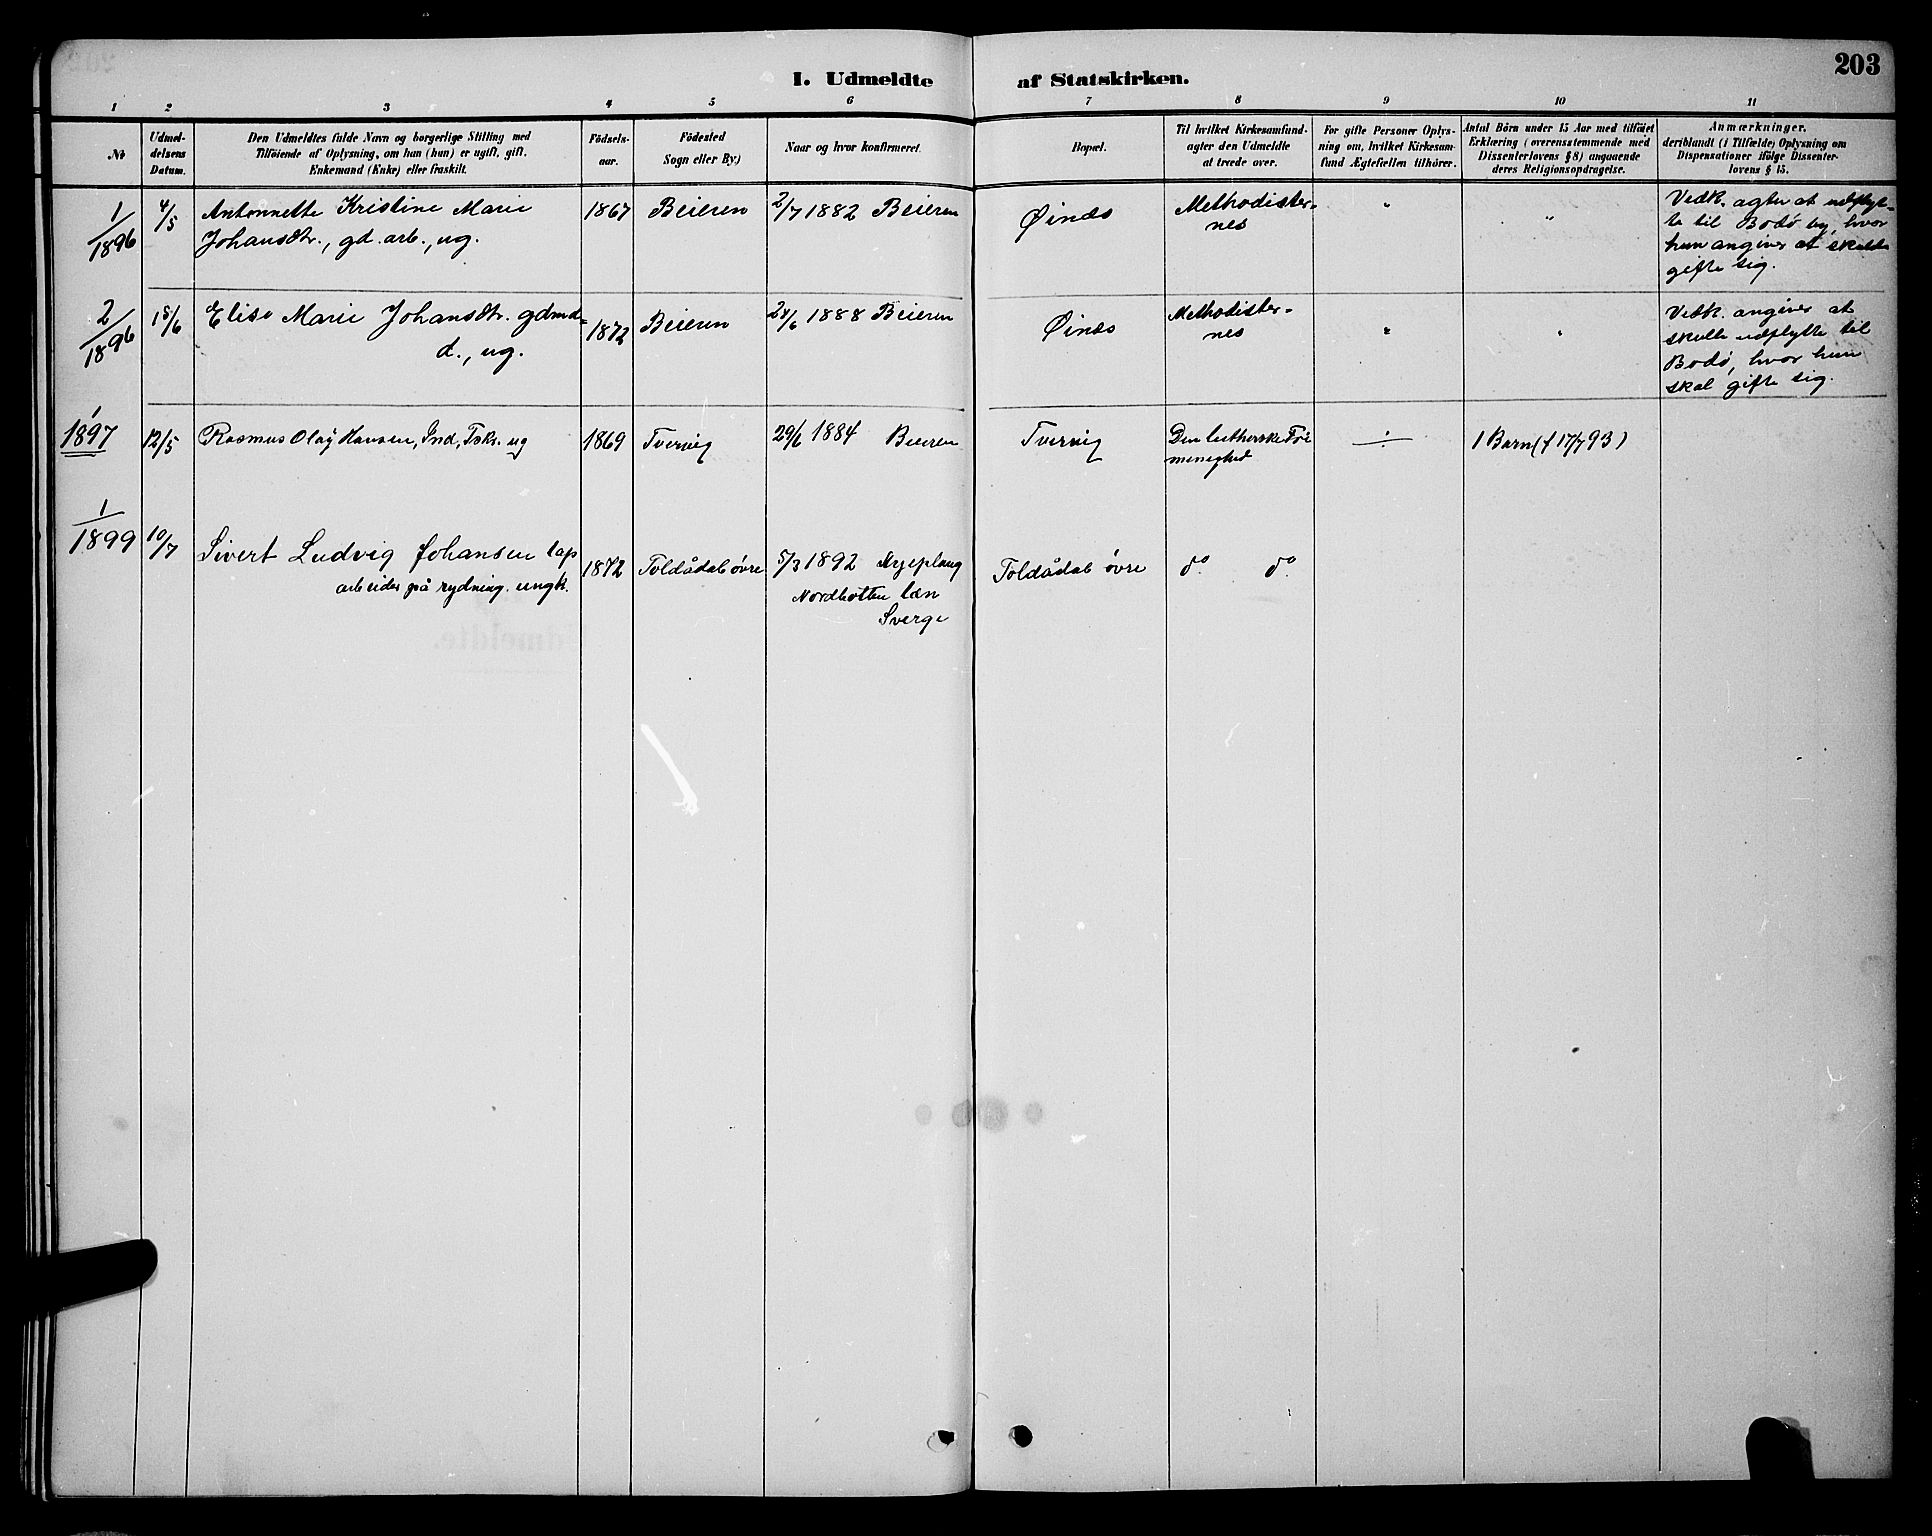 203
I. Udmeldte af Statskirken.
1 2 3 4 5 6 7 8 9 10 11
No
Udmel-
delsens
Datum.
Den Udmeldtes fulde Navn og borgerlige Stilling med
Tilføiende af Oplysning, om han (hun) er ugift, gift.
Enkemand (Enke) eller fraskilt.
Födsels-
aar.
Födested
Sogn eller By)
Naar og hvor konfirmeret.
Bopæl.
Til hvilket Kirkesamfund-
agter den Udmeldte
at træde over.
For gifte Personer Oplys-
ning om, hvilket Kirkesam-
fund Ægtefællen tilhörer.
Antal Börn under 15 Aar med tilföiet
Erklæring (overensstemmende med
Dissenterlovens § 8) angaaende
deres Religionsopdragelse.
Anmærkninger.
deriblandt (i Tilfælde) Oplysning om
Dispensationer ifölge Dissenter-
lovens § 15.
1/1896
4/5
Antonnette Kristine Marie
Johansdtr., gd. arb., ug.
1867
Beieren
2/7 1882 Beieren
Øinæs
Methodister-
nes
"
"
Vedk. agter at udflyt-
te til Bodø by, hvor
hun angiver at skulde
gifte sig.
2/1896
18/6
Elise Marie Johansdtr. gdmd-
d., ug.
1872
Beieren
24/6 1888 Beieren
Øinæs
Methodister-
nes
"
"
Vedk. angiver at
skulle udflytte til
Bodø, hvor hun
skal gifte sig.
1
1897
12/5
Rasmus Olaj Hansen, Ind, Fskr. ug
1869
Tvervig
29/6 1884 Beieren
Tvervig
Den lutherske Fri
menighed
÷
1 Barn (f 17/7 93)
1/1899
10/7
Sivert Ludvig Johansen lap
arbeider på rydning. ungk.
1872
Toldådal øvre
5/3 1892 Arjeplaug
Nordbotten læn
Sverge
Toldådal øvre
do do
Udmeldte.